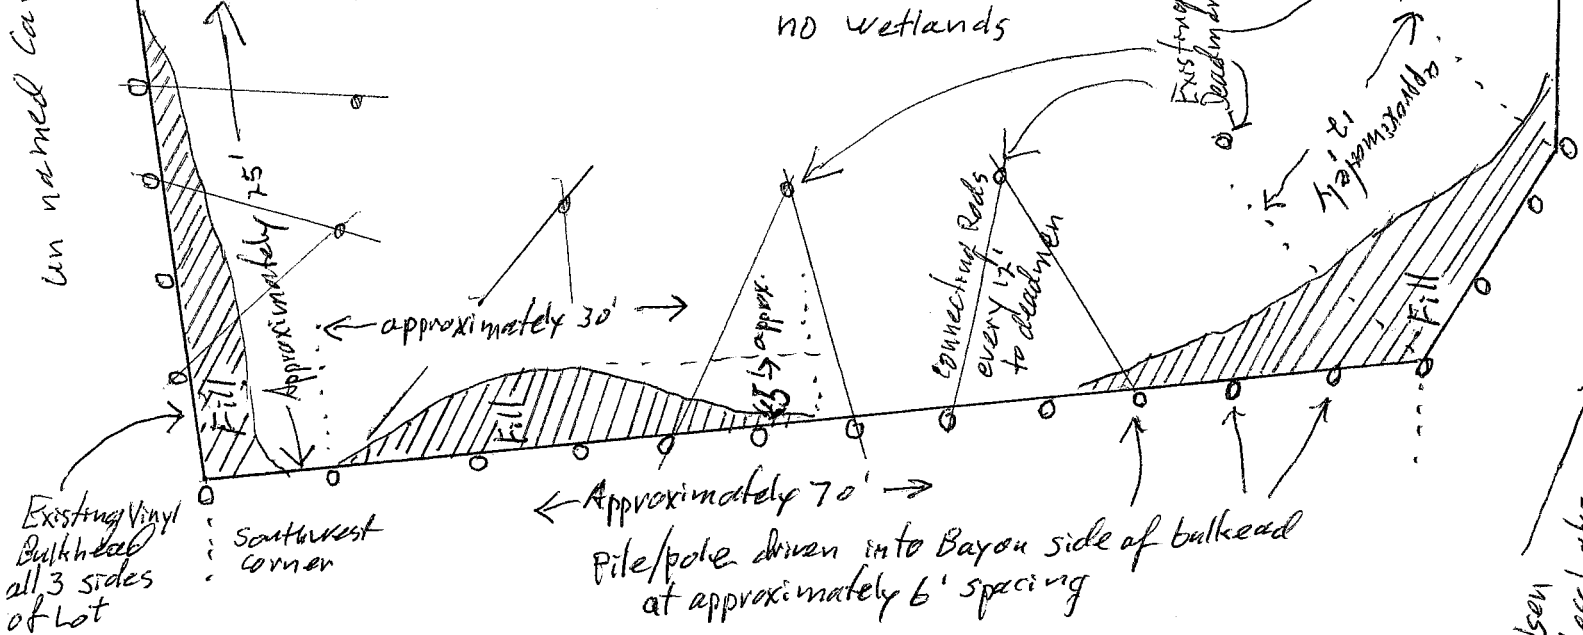 un named
no wetlands
Existing
Deadmen
approximately
12'
Approximately 75'
← approximately 30' →
approx.
Connecting Rods
every 12'
to deadmen
Fill
Fill
Fill
Existing Vinyl
Bulkhead
all 3 sides
of Lot
southwest
corner
← Approximately 70' →
Pile/pole driven into Bayou side of bulkead
at approximately 6' spacing